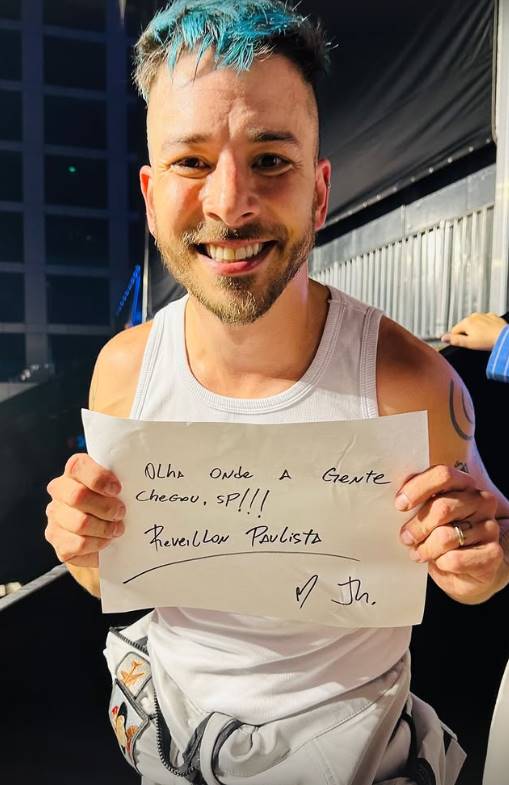 Olha onde a gente
chegou, SP!!!
Reveillon Paulista
Jh.